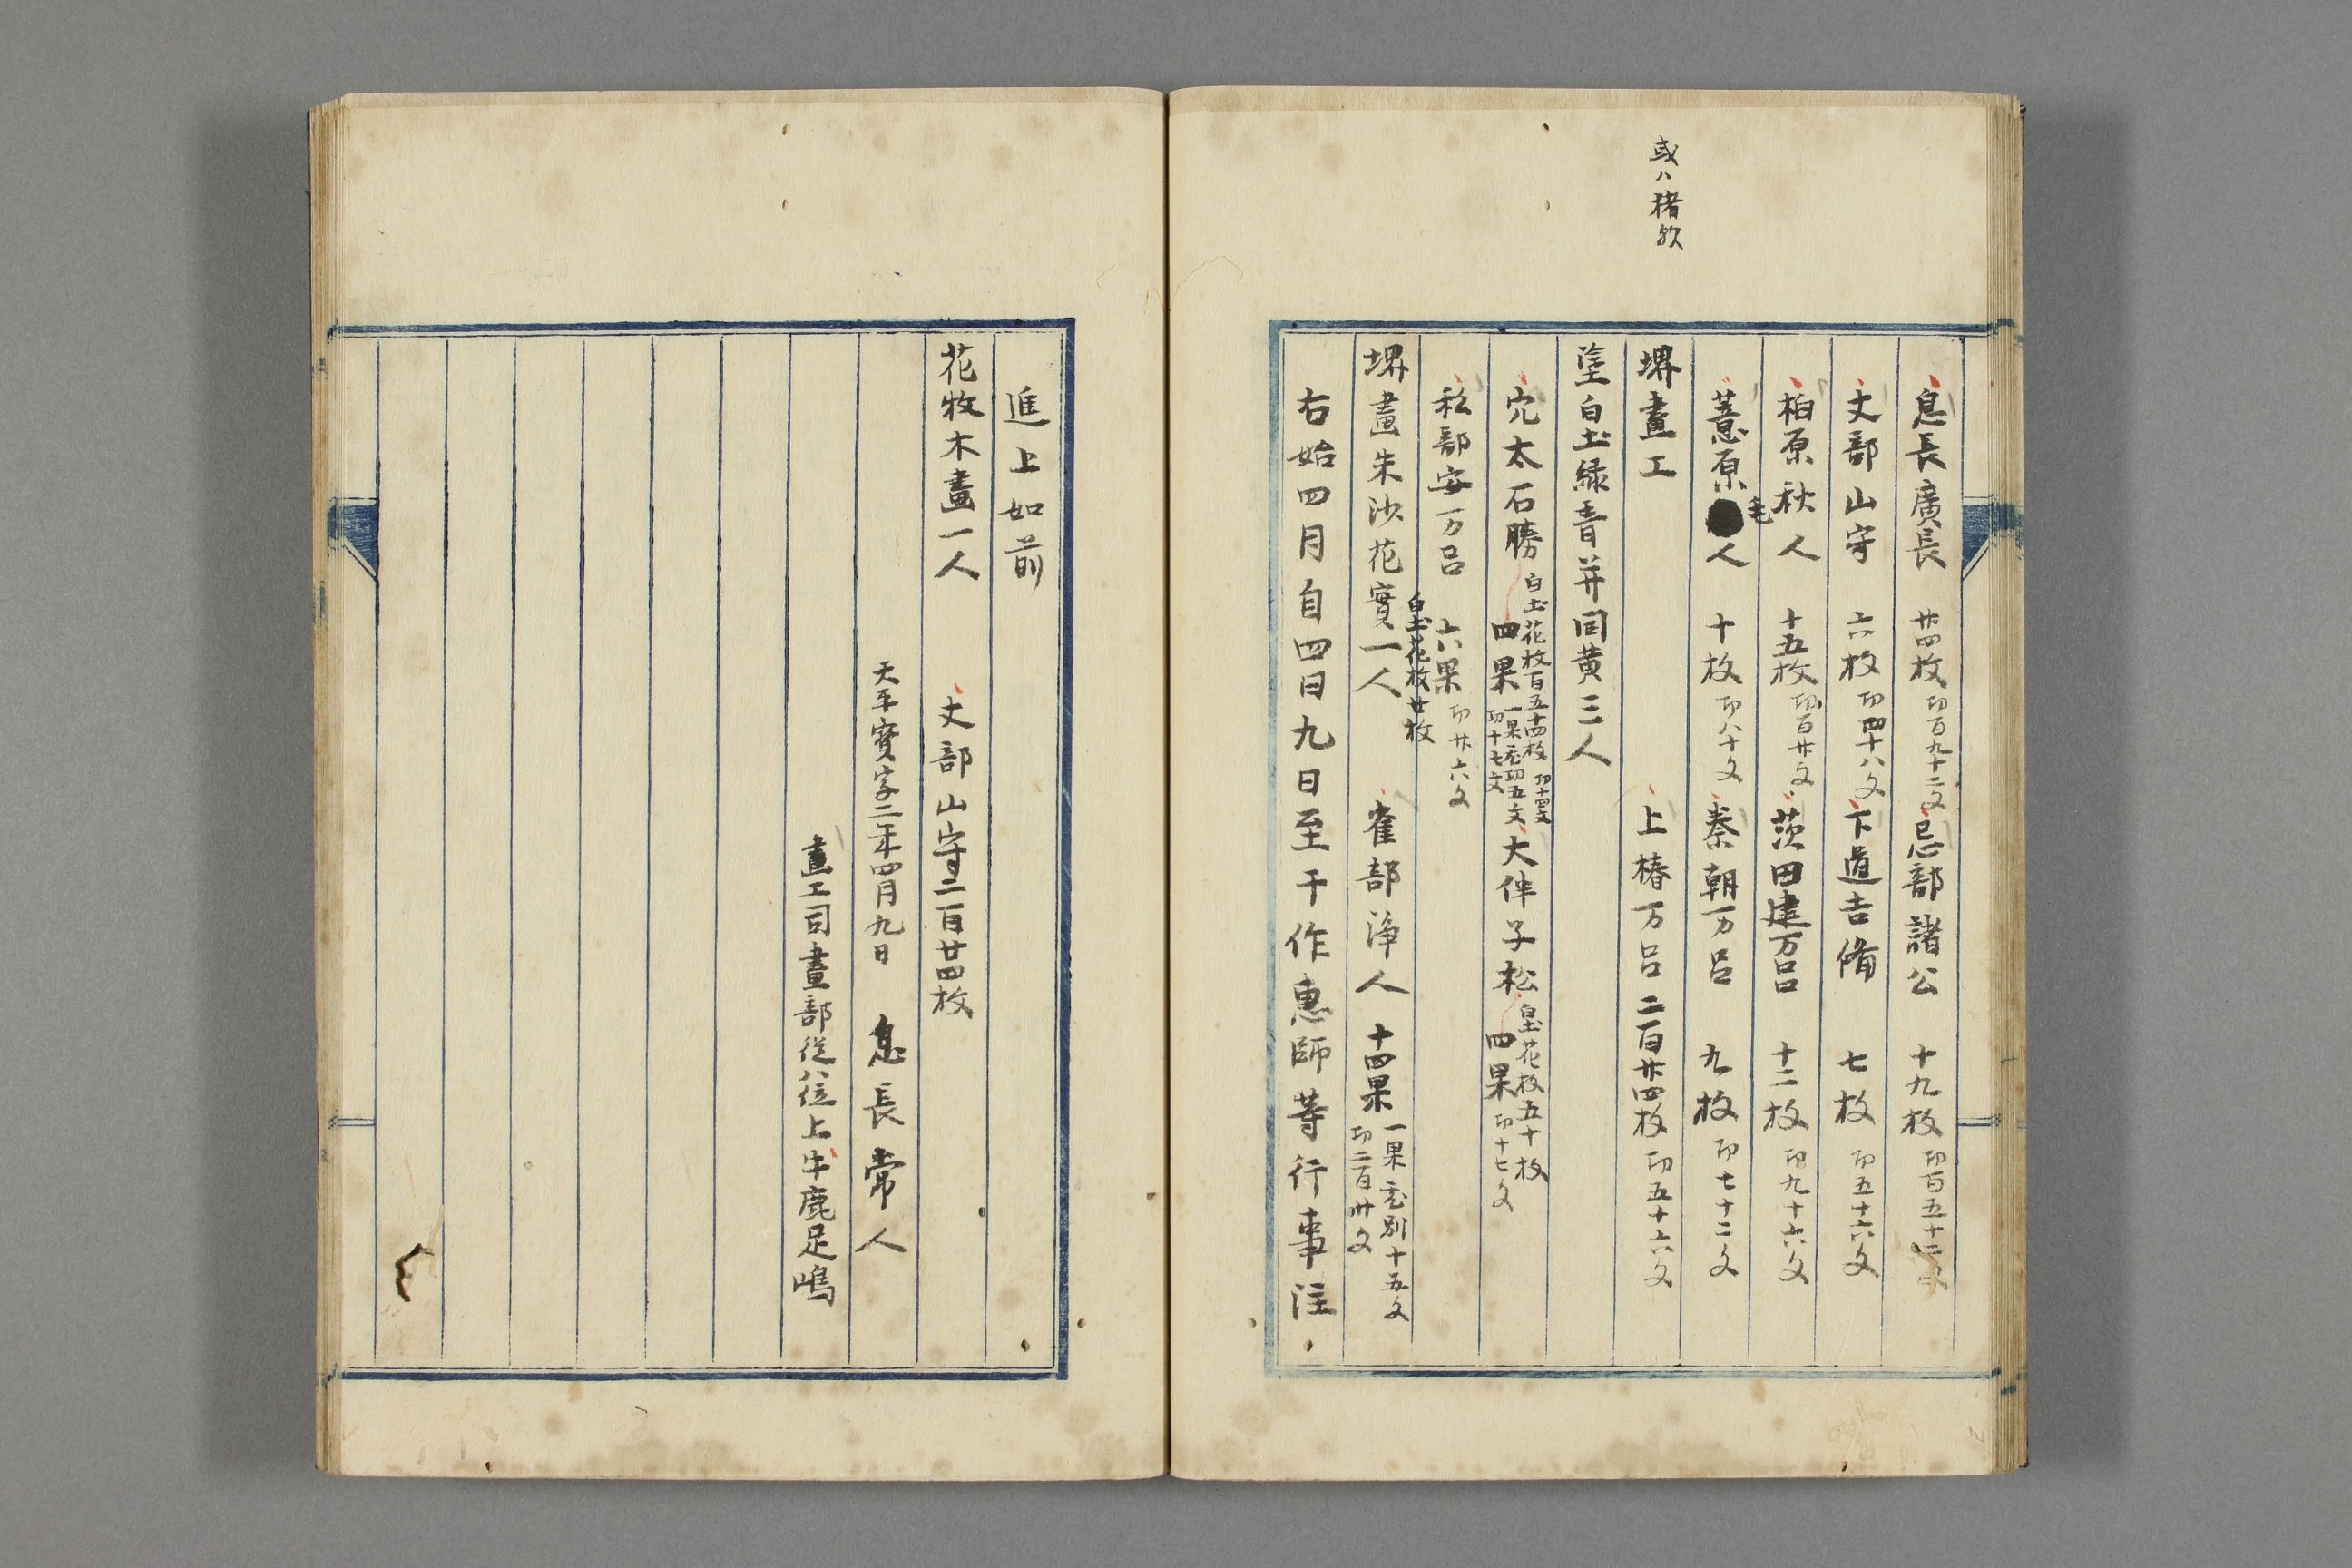 或ハ猪歟
息長廣長 廿四枚 功百九十二文 忌部諸公 十九枚 功百五十二文
丈部山守 六枚 功四十八文 下道吉備 七枚 功五十六文
柏原秋人 十五枚 功百廿文 茨田建万呂 十二枚 功九十六文
原毛人 十枚 功八十文 秦朝万呂 九枚 功七十二文
堺畫工 上椿万呂 二百廿四枚 功五十六文
塗白土緑青并同黄三人
穴太石勝 白土花枚百五十四枚 功十四文 四果 一果充功五文 功十七文 大伴子松 白土花枚五十枚 四果 功十七文
私部安万呂 白土花枚廿枚 六果 功廿六文
堺畫朱沙花實一人 雀部浄人 十四果 一果充別十五文 功二百卅文
右始四月自四日九日至于作惠師等行事注
進上如前
花枚木畫一人 丈部山守二百廿四枚
天平寶字二年四月九日 息長常人
畫工司畫部従八位上牛鹿足嶋